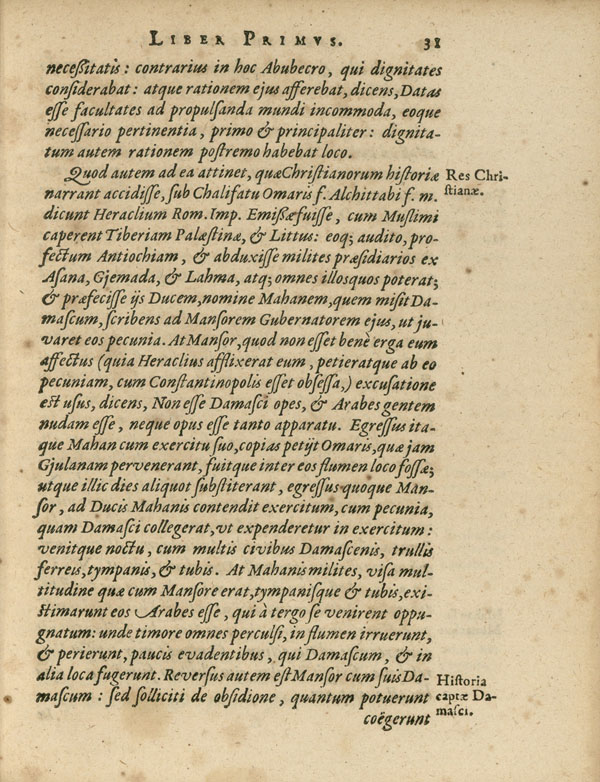 LIBER PRIMVS. 38
neceſſitatis: contrarius in hoc Abubecro, qui dignitates
conſiderabat: atque rationem ejus afferebat, dicens, Datas
eſſe facultates ad propulſanda mundi incommoda, eoque
neceſſario pertinentia, primo & principaliter: dignita-
tum autem rationem poſtremo habebat loco.
Quod autem ad ea attinet, quæ Chriſtianorum hiſtoriæ
narrant accidiſſe, ſub Chalifatu Omaris f. Alchittabi f. m.
dicunt Heraclium Rom. Imp. Emiſſæ fuiſſe, cum Muſlimi
caperent Tiberiam Palæſtinæ, & Littus: eoq; audito, pro-
fectum Antiochiam, & abduxiſſe milites præſidiarios ex
Aſana, Gjemada, & Lahma, atq; omnes illos quos poterat;
& præfeciſſe ijs Ducem, nomine Mahanem, quem miſit Da-
maſcum, ſcribens ad Manſorem Gubernatorem ejus, ut ju-
varet eos pecunia. At Manſor, quod non eſſet benè erga eum
affectus (quia Heraclius afflixerat eum, petieratque ab eo
pecuniam, cum Conſtantinopolis eſſet obſeſſa,) excuſatione
est uſus, dicens, Non eſſe Damaſci opes, & Arabes gentem
nudam eſſe, neque opus eſſe tanto apparatu. Egreſſus ita-
que Mahan cum exercitu ſuo, copias petijt Omaris, quæ jam
Gjulanam pervenerant, fuitque inter eos flumen loco foſſæ;
utque illic dies aliquot ſubſtiterant, egreſſus quoque Man-
ſor, ad Ducis Mahanis contendit exercitum, cum pecunia,
quam Damaſci collegerat, vt expenderetur in exercitum:
venitque noctu, cum multis civibus Damaſcenis, trullis
ferreis, tympanis, & tubis. At Mahanis milites, viſa mul-
titudine quæ cum Manſore erat, tympanisque & tubis, exi-
ſtimarunt eos Arabes eſſe, qui à tergo ſe venirent oppu-
gnatum: unde timore omnes perculſi, in flumen irruerunt,
& perierunt, paucis evadentibus, qui Damaſcum, & in
alia loca fugerunt. Reverſus autem est Manſor cum ſuis Da-
maſcum: ſed ſolliciti de obſidione, quantum potuerunt
coëgerunt
Res Chri-
ſtianæ.
Hiſtoria
captæ Da-
maſci.